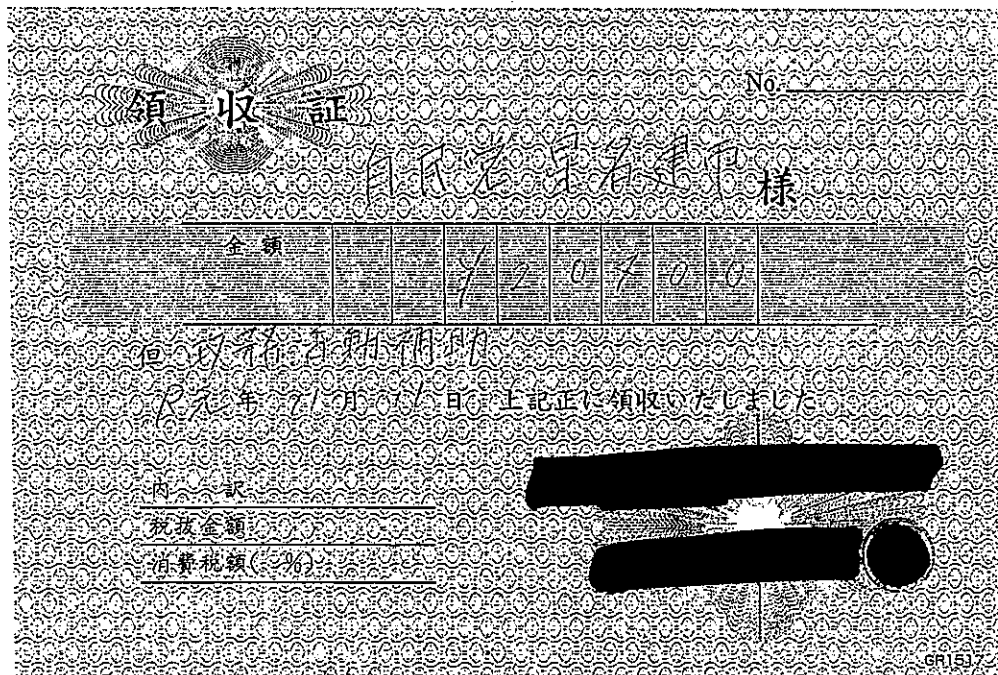 領収証
No.
自民党 星名建市 様
金額 ¥20400
但 政務活動補助
R元年 11月 11日 上記正に領収いたしました
内訳
税抜金額
消費税額( %)
GR1517